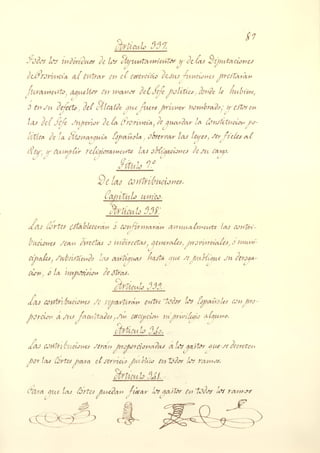 89
Articulo 337.
Todos los individuos de los Ayuntamientos y de las Diputaciones
de Provincia al entrar en el exercicio de sus funciones prestarán
juramento, aquellos en manos del Gefe politico, donde le hubiere,
ó en su defecto, del Alcalde que fuere primer nombrado; y estos en
las del Gefe superior de la Provincia, de guardar la Constitucion po-
lítica de la Monarquía Española, observar las leyes, ser fieles al
Rey, y cumplir religiosamente las obligaciones de su cargo.
Titulo 7º
De las contribuciones.
Capitulo unico.
Articulo 338.
Las Cortes establecerán ó confirmarán anualmente las contri-
buciones sean directas ó indirectas, generales, provinciales, ó muni-
cipales, subsistiendo las antiguas hasta que se publique su deroga-
cion, ó la imposicion de otras.
Articulo 339.
Las contribuciones se repartirán entre todos los Españoles con pro-
porcion á sus facultades, sin excepcion ni privilegio alguno.
Articulo 340.
Las contribuciones serán proporcionadas á los gastos que se decreten
por las Cortes para el servicio público en todos los ramos.
Articulo 341.
Para que las Cortes puedan fixar los gastos en todos los ramos